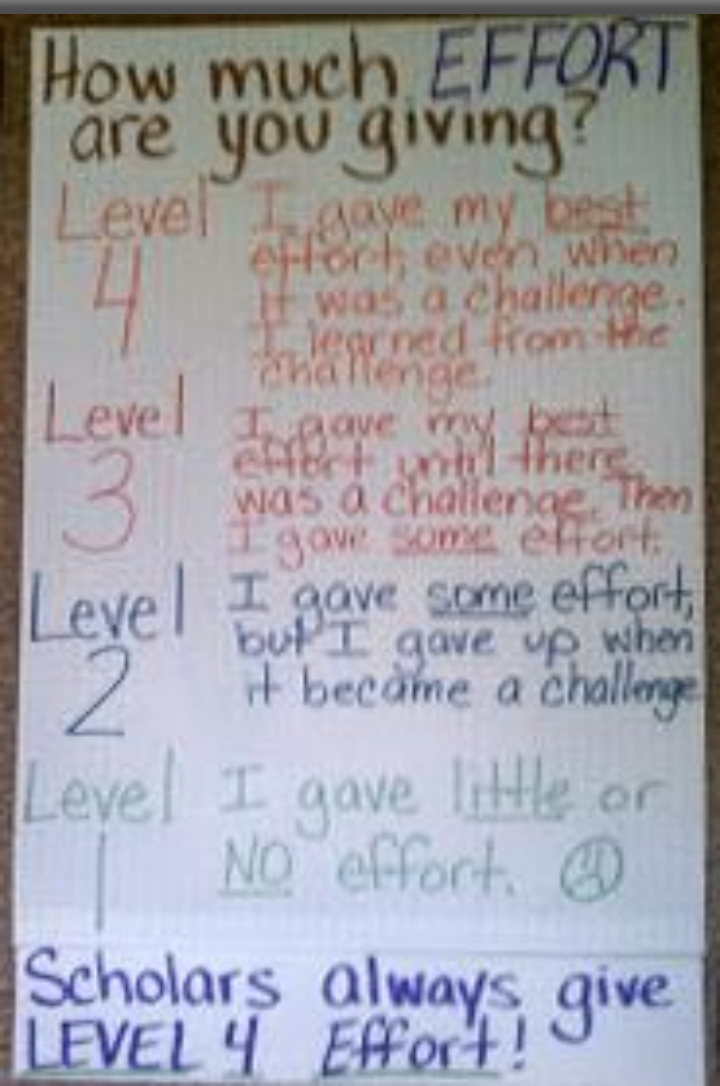 How much EFFORT
are you giving?
Level 4
I gave my best
effort, even when
it was a challenge.
I learned from the
challenge.
Level 3
I gave my best
effort until there
was a challenge. Then
I gave some effort.
Level 2
I gave some effort,
but I gave up when
it became a challenge
Level 1
I gave little or
NO effort.
Scholars always give
LEVEL 4 Effort!